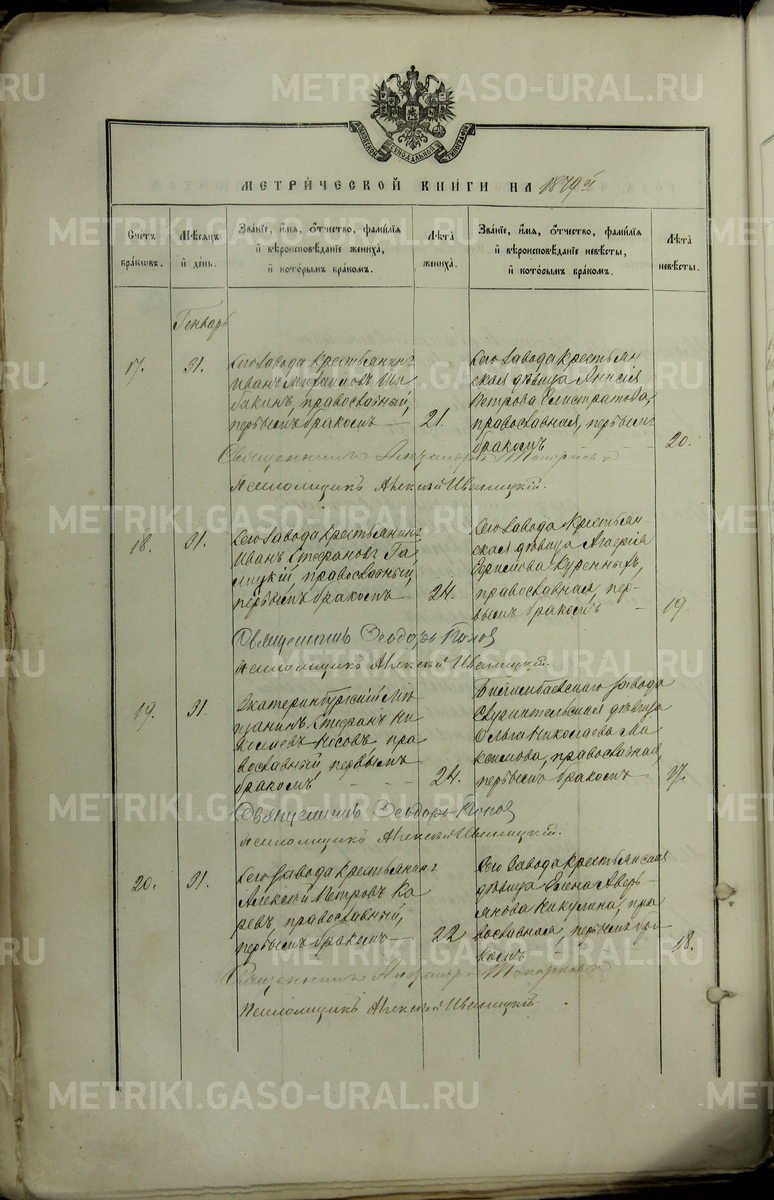 METRIKI.GASO-URAL.RU
МОСКОВСКОЙ СУНОДАЛЬНОЙ ТИПОГРАФІИ
МЕТРИ́ЧЕСКОЙ КНИ́ГИ НА 1879й
Счетъ бра́ковъ.
Мѣсяцъ и҆ де́нь.
Зва́нїе, и҆́мѧ, ѻ҆́тчество, фами́лїѧ
и҆ вѣроисповѣ́данїе жениха̀,
и҆ кото́рымъ бра́комъ.
Лѣта̀ жениха̀.
Зва́нїе, и҆́мѧ, ѻ҆́тчество, фами́лїѧ
и҆ вѣроисповѣ́данїе невѣ́сты,
и҆ кото́рымъ бра́комъ.
Лѣта̀ невѣ́сты.
Генварь
17.
31.
Сего завода крестьянинъ
Иванъ Михаиловъ
православный,
первымъ бракомъ
21.
Сего завода крестьян-
ская дѣвица Анисія
Петрова Елистратова,
православная, первымъ
бракомъ
20.
Священникъ Александръ Топорковъ
Псаломщикъ Алексѣй Иваницкій.
18.
31.
Сего завода крестьянинъ
Иванъ Стефановъ Га-
лицкій, православный
первымъ бракомъ
24.
Сего завода крестьян-
ская дѣвица Агафія
Куренныхъ,
православная, пер-
вымъ бракомъ
19.
Священникъ Ѳеодоръ Поповъ
Псаломщикъ Алексѣй Иваницкій.
19.
31.
Екатеринбургскій мѣ-
щанинъ Стефанъ Ни-
колаевъ Носовъ, пра-
вославный первымъ
бракомъ
24.
Билимбаевскаго завода
дѣвица
Ольга Николаева Ма-
ксимова, православная,
первымъ бракомъ
17.
Священникъ Ѳеодоръ Поповъ
Псаломщикъ Алексѣй Иваницкій.
20.
31.
Сего завода крестьянинъ
Алексѣй Петровъ Ка-
ревъ, православный,
первымъ бракомъ
22
Сего завода крестьянская
дѣвица Елена Аверь-
янова Никулина, пра
вославная, первымъ бра-
комъ
18.
Священникъ Александръ Топорковъ
Псаломщикъ Алексѣй Иваницкій.